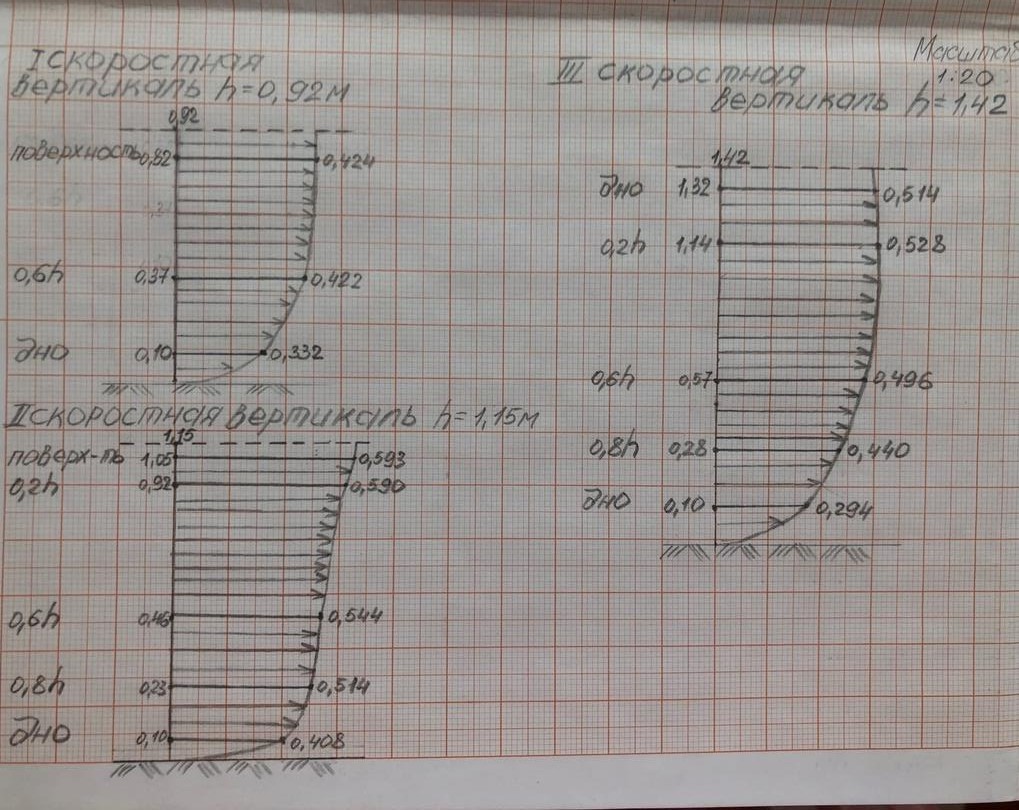 I скоростная
вертикаль h=0,92м
0,92
поверхность 0,82 0,424
0,6h 0,37 0,422
дно 0,10 0,332
II скоростная вертикаль h=1,15м
1,15
поверх-ть 1,05 0,593
0,2h 0,92 0,590
0,6h 0,46 0,544
0,8h 0,23 0,514
дно 0,10 0,408
Масштаб
1:20
III скоростная
вертикаль h=1,42
1,42
дно 1,32 0,514
0,2h 1,14 0,528
0,6h 0,57 0,496
0,8h 0,28 0,440
дно 0,10 0,294